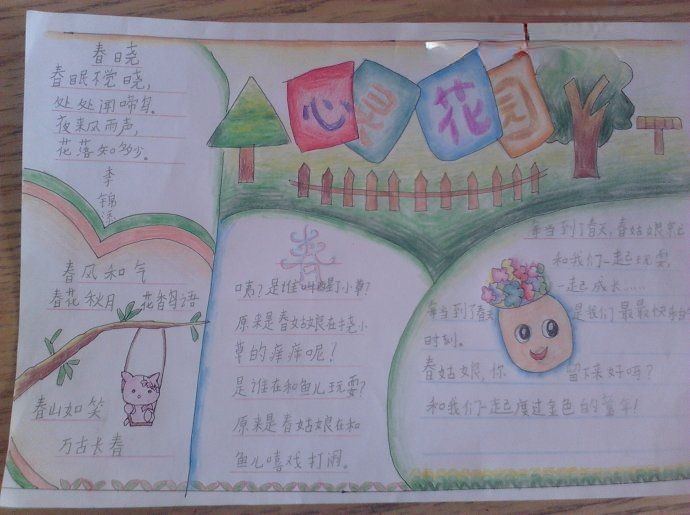 心是花园
春晓
春眠不觉晓,
处处闻啼鸟。
夜来风雨声,
花落知多少。
李
锦
春风和气
春花秋月 花香鸟语
春山如笑
万古长春
春
咦?是谁叫醒小草?
原来是春姑娘在挠小
草的痒痒呢?
是谁在和鱼儿玩耍?
原来是春姑娘在和
鱼儿嘻戏打闹。
每当到了春天,春姑娘总
和我们一起玩耍,
一起成长……
每当到了春天 是我们最最快乐的
时刻。
春姑娘,你 留下来好吗?
和我们一起度过金色的童年!